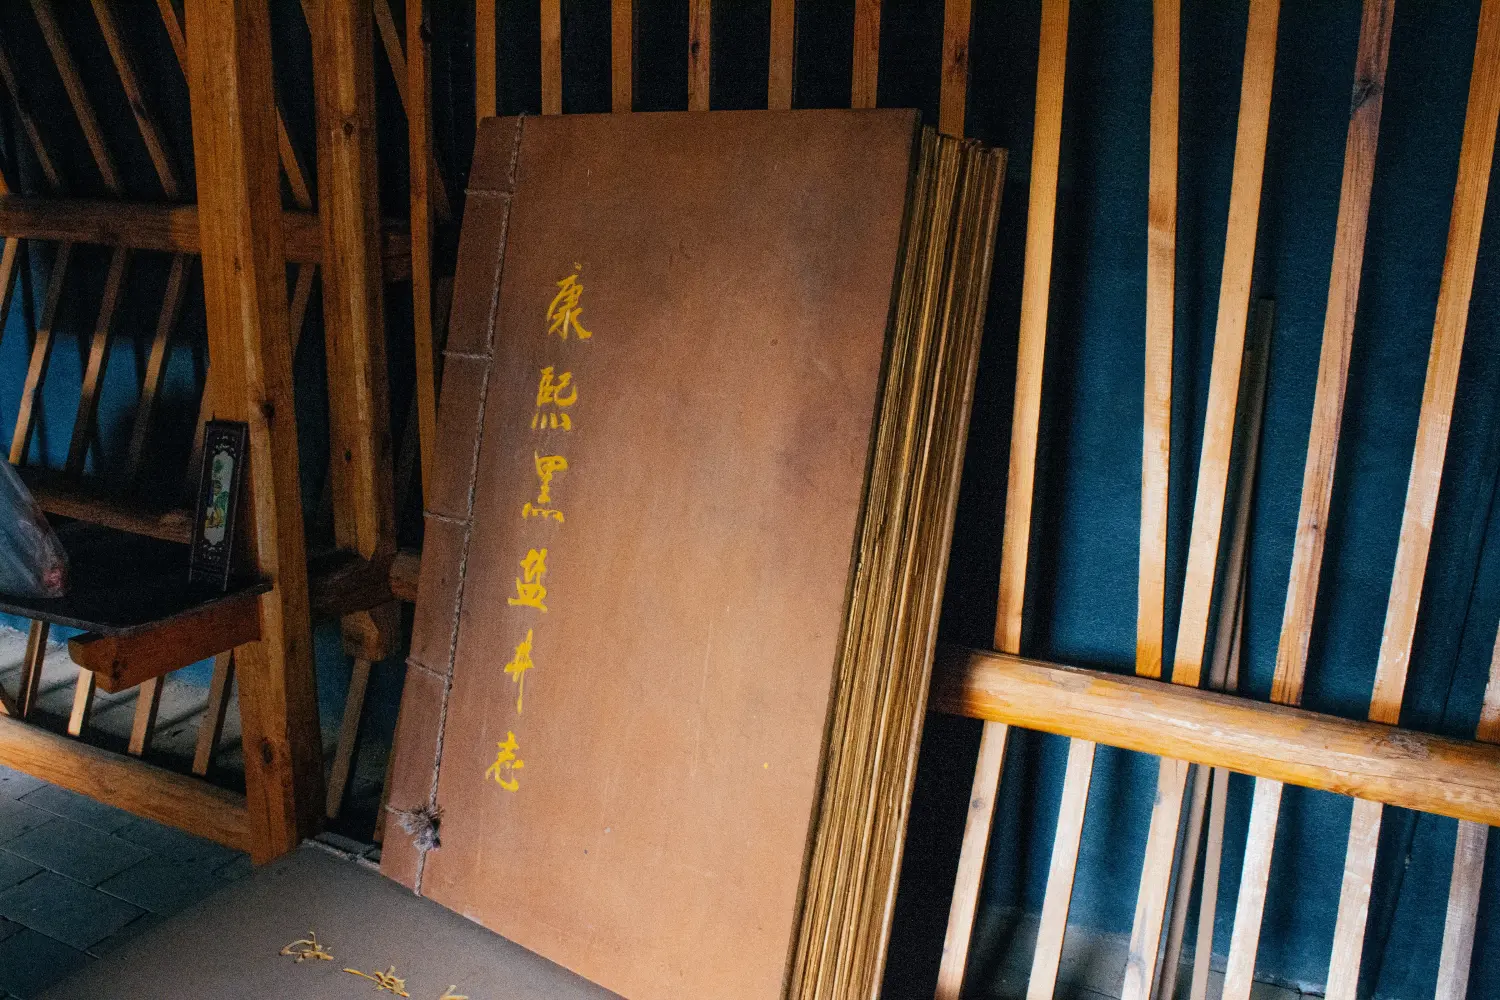 康熙黑盐井志